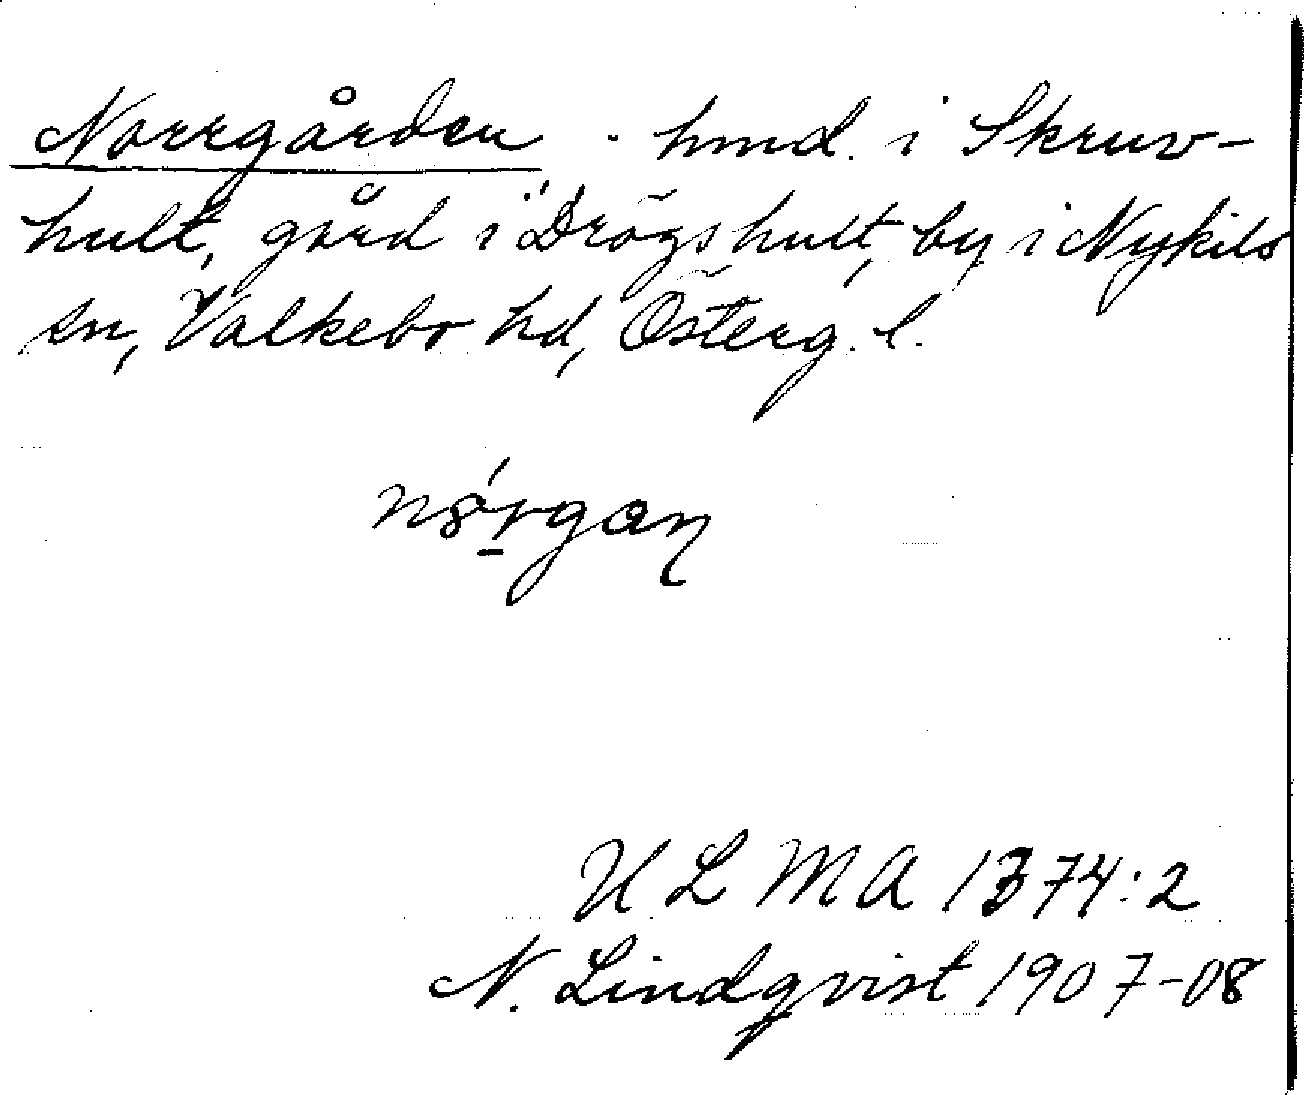 Norrgården - hmd. i Skruv-
hult, gård i Drögshult, by i Nykils
sn, Valkebo hd, Österg. l.
nǿrgan
ULMA 1374:2
N. Lindqvist 1907-08